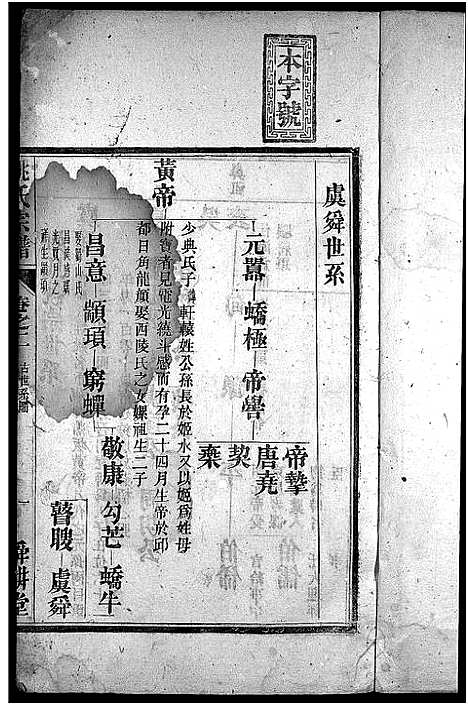 本字號
虞舜世系
黃帝
元囂 蟜極 帝嚳
帝摯
唐堯
契
棄
少典氏子 軒轅姓公孫長於姬水又以姬爲姓母
附寶者見電光繞斗感而有孕二十四月生帝於邱
都日角龍顏娶西陵氏之女嫘祖生二子
昌意 顓頊 窮蟬
敬康 勾芒 蟜牛
瞽瞍 虞舜
娶蜀山氏
昌僕感
光貫月之
祥生顓頊
氏宗譜
卷之一
古世系圖
舜耕堂